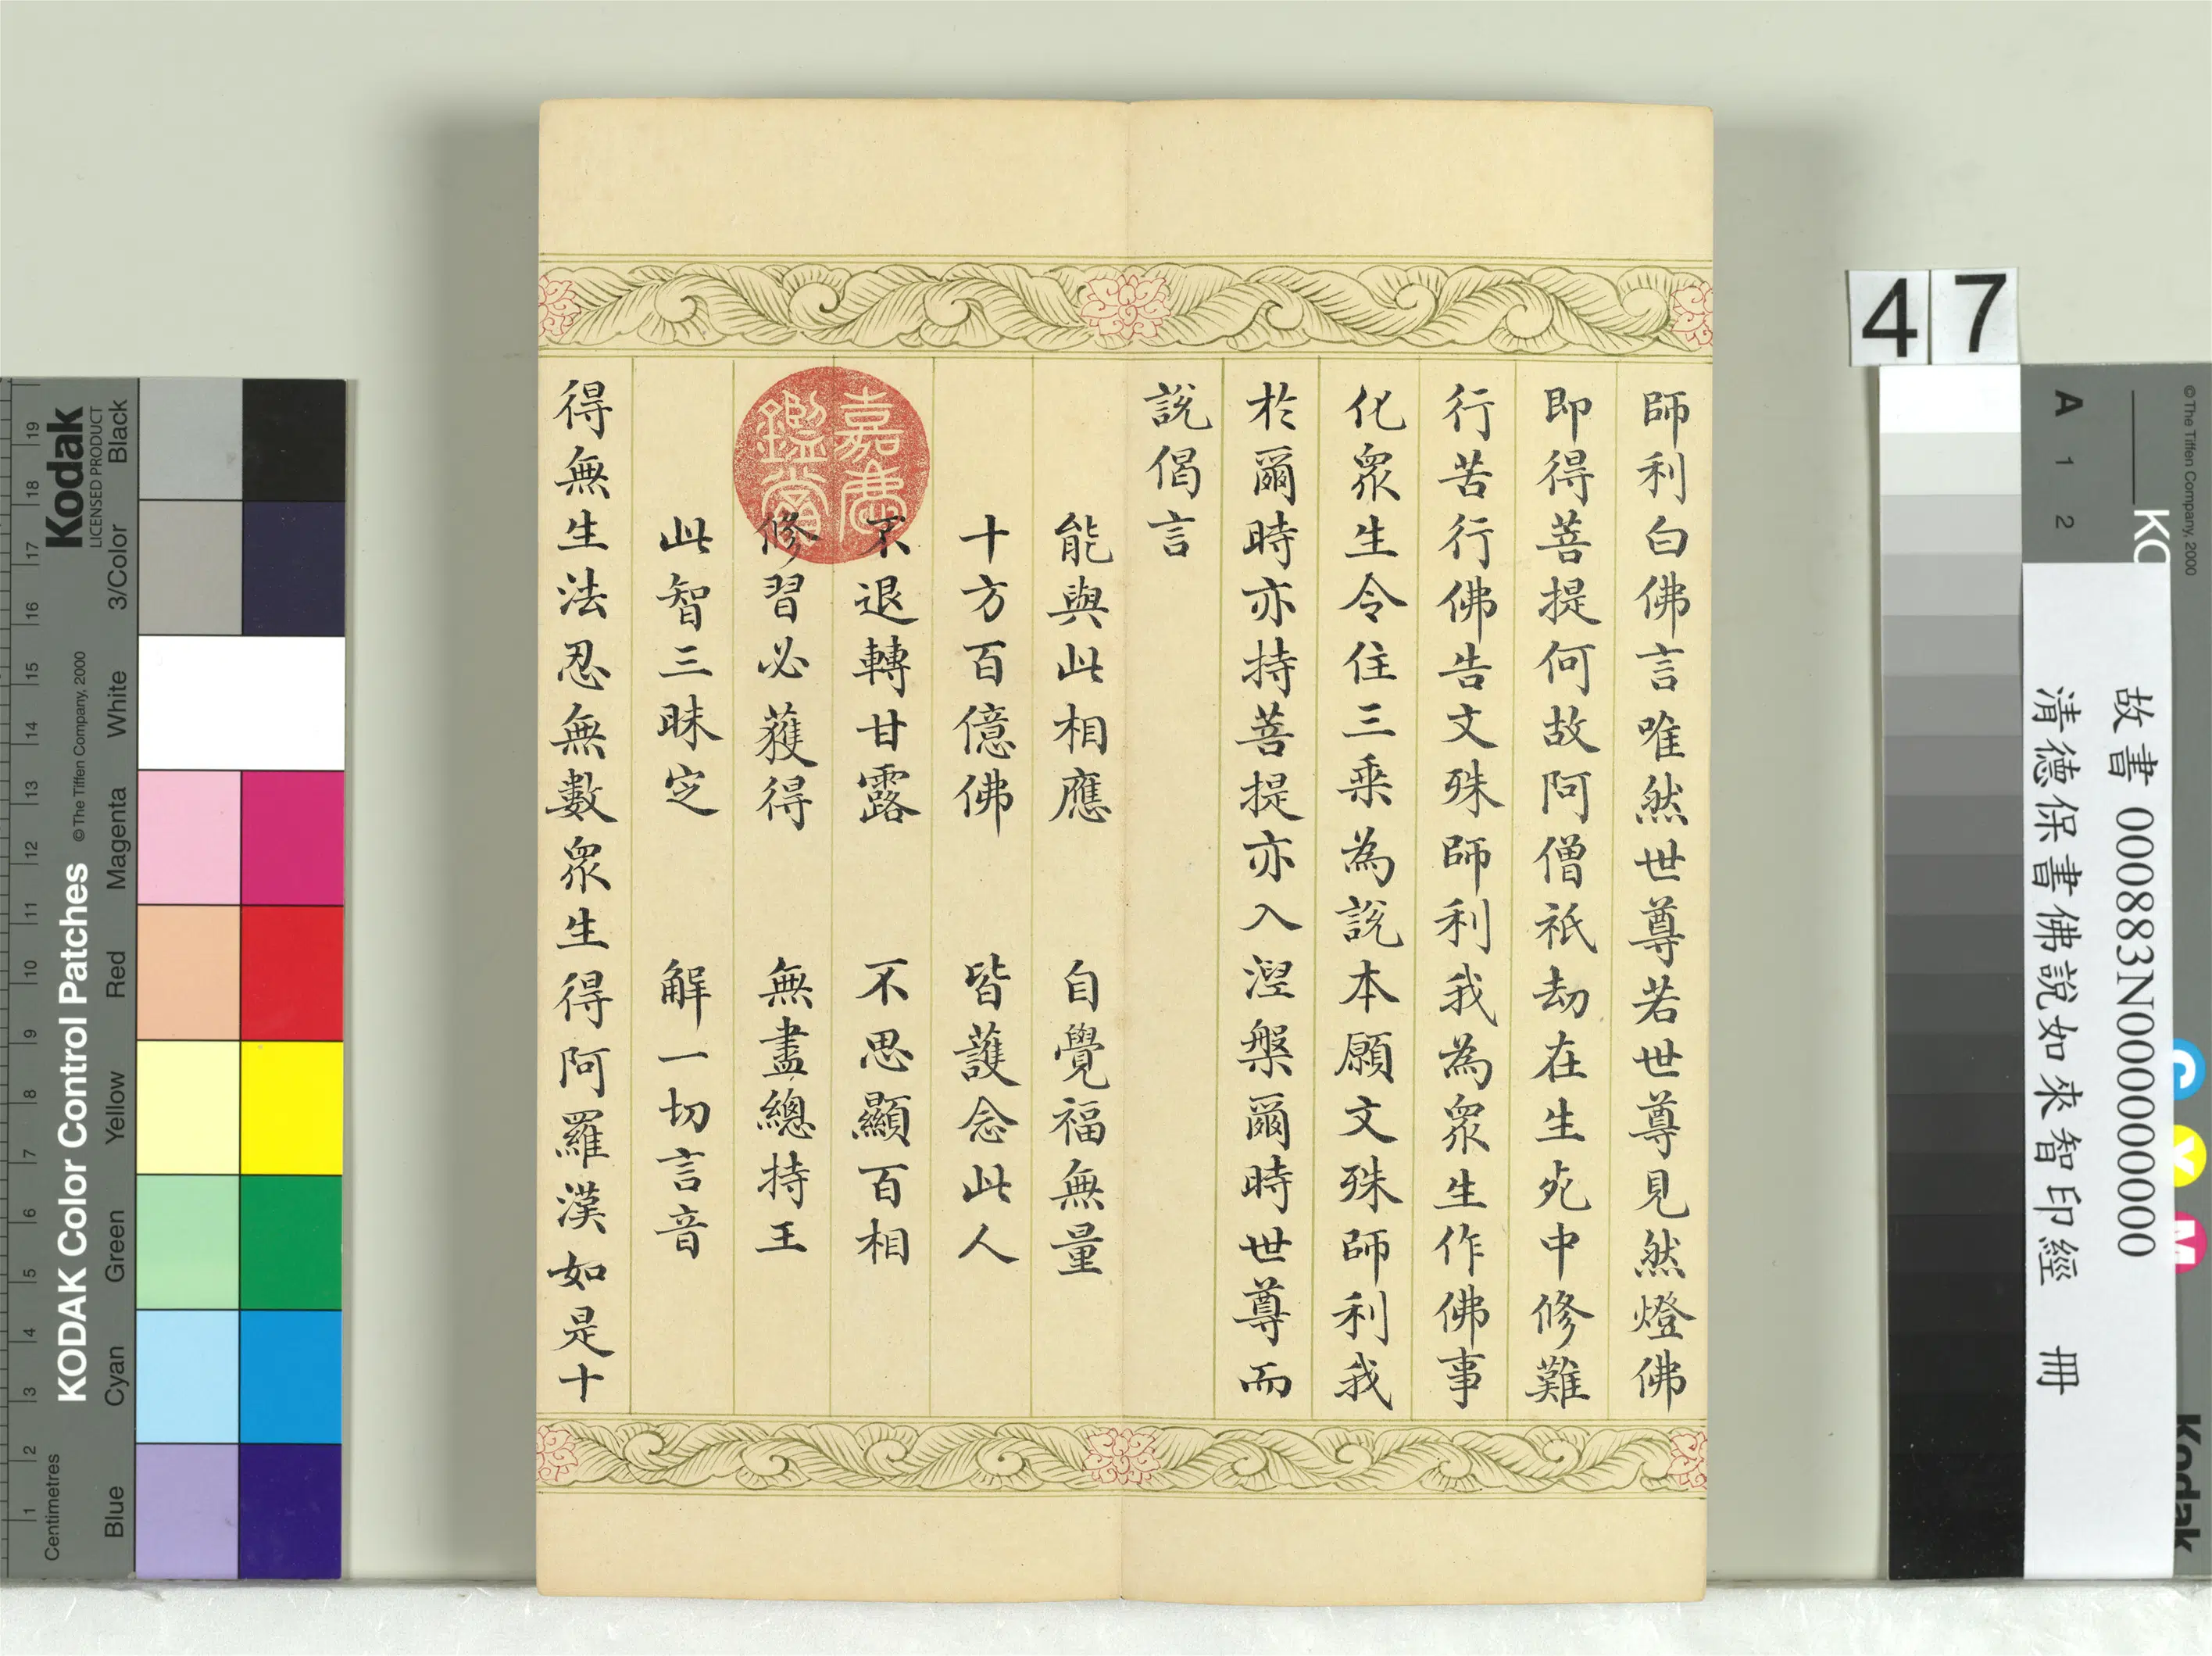 師利白佛言唯然世尊若世尊見然燈佛
即得菩提何故阿僧祇劫在生死中修難
行苦行佛告文殊師利我為眾生作佛事
化眾生令住三乘為說本願文殊師利我
於爾時亦持菩提亦入涅槃爾時世尊而
說偈言
能與此相應 自覺福無量
十方百億佛 皆護念此人
不退轉甘露 不思顯百相
修習必獲得 無盡總持王
此智三昧定 解一切言音
得無生法忍無數眾生得阿羅漢如是十
嘉慶
鑑賞
47
故書 000883N000000000
清德保書佛說如來智印經 冊
Kodak
LICENSED PRODUCT
KODAK Color Control Patches
© The Tiffen Company, 2000
Centimetres
1 2 3 4 5 6 7 8 9 10 11 12 13 14 15 16 17 18 19
Blue Cyan Green Yellow Red Magenta White 3/Color Black
A 1 2
KO
© The Tiffen Company, 2000
C Y M
Kodak